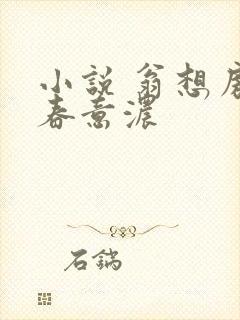 小説 翁想
春意濃
石鍋